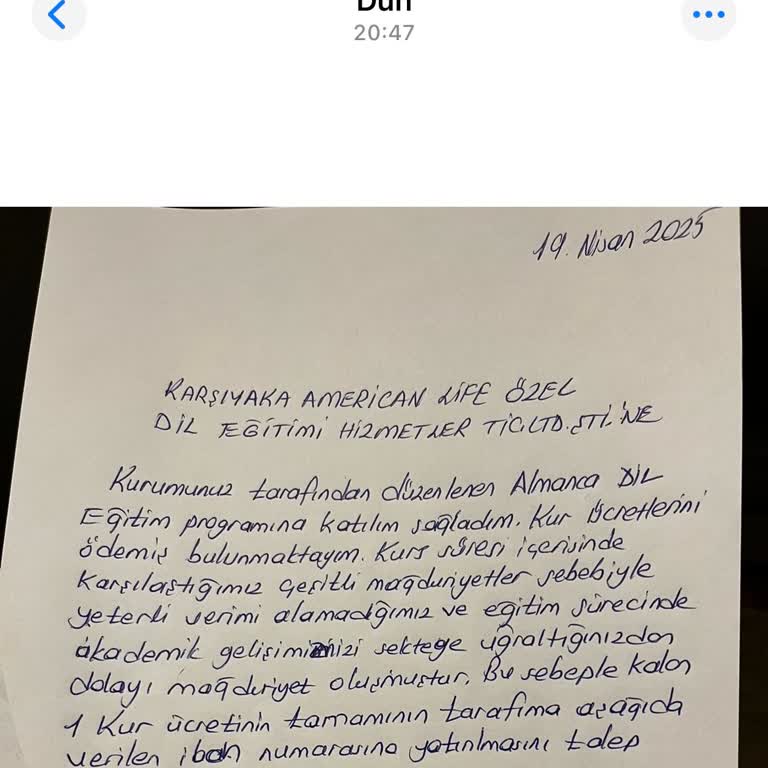 Dün
20:47
19. Nisan 2025
KARŞIYAKA AMERICAN LIFE ÖZEL
DİL EĞİTİMİ HİZMETLER TİC.LTD.ŞTİ.'NE
Kurumunuz tarafından düzenlenen Almanca DİL
Eğitim programına katılım sağladım. Kur ücretlerini
ödemiş bulunmaktayım. Kurs süresi içerisinde
karşılaştığımız çeşitli mağduriyetler sebebiyle
yeterli verimi alamadığımız ve eğitim sürecinde
akademik gelişimimizi sekteye uğrattığınızdan
dolayı mağduriyet oluşmuştur. Bu sebeple kalan
1 Kur ücretinin tamamının tarafıma aşağıda
verilen iban numarasına yatırılmasını talep